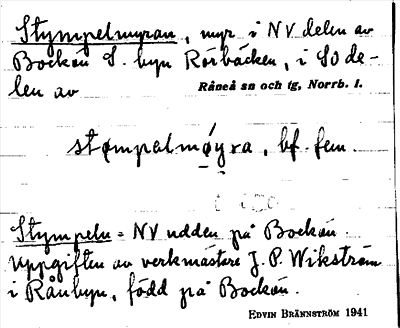 Stympelmyran, myr i NV delen av
Bockön S. byn Rörbäcken, i SO de-
len av Råneå sn och tg, Norrb. l.
stømpalmøyra, bf. fem.
Stympeln = NV udden på Bockön.
Uppgiften av verkmästare J. P. Wikström
i Rånbyn, född på Bockön.
EDVIN BRÄNNSTRÖM 1941